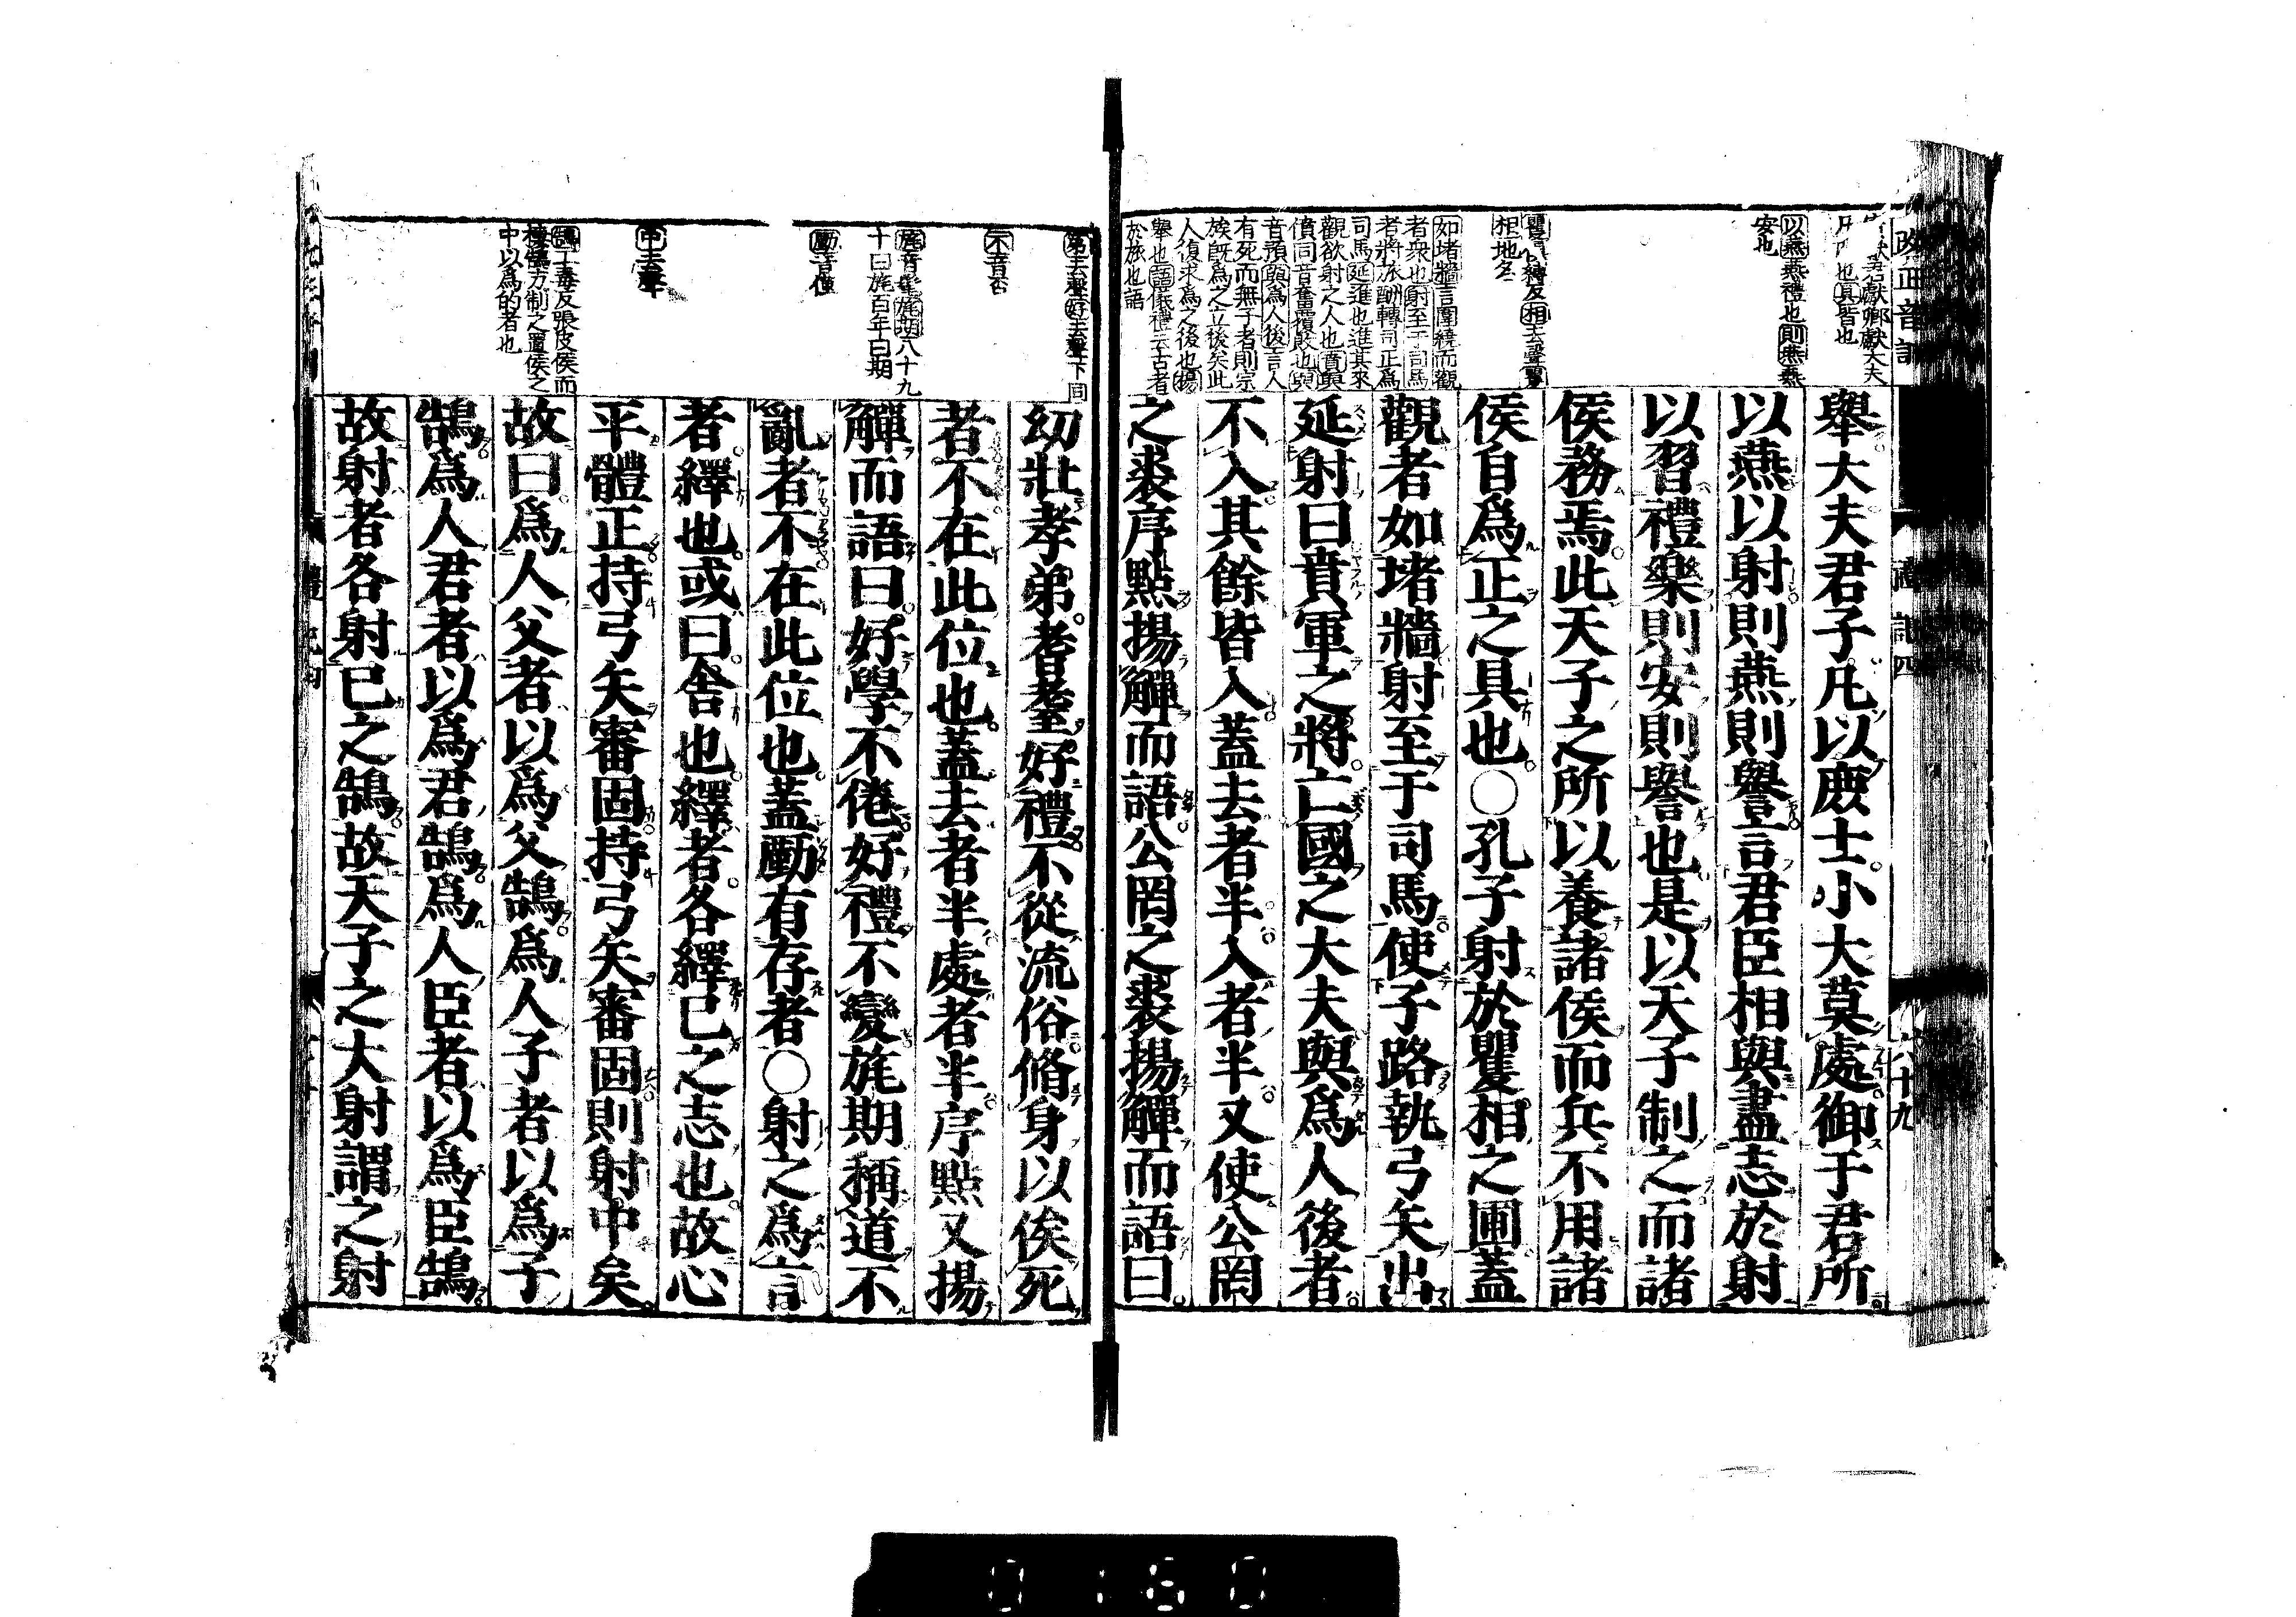 改正音訓
禮記四
六十九
獻君獻卿獻大夫
也具皆也
以燕燕禮也則燕燕
安也
縛反相去聲矍
相地名
如堵牆言圍繞而觀
者衆也射至于司馬
者將旅酬轉司正爲
司馬延進也進其來
觀欲射之人也賁與
僨同音奮覆敗也與
音預與爲人後言人
有死而無子者則宗
族既爲之立後矣此
人復求爲之後也揚
舉也語儀禮云古者
於旅也語
舉大夫君子凡以庶士小大莫處御于君所
以燕以射則燕則譽言君臣相與盡志於射
以習禮樂則安則譽也是以天子制之而諸
侯務焉此天子之所以養諸侯而兵不用諸
侯自爲正之具也○孔子射於矍相之圃蓋
觀者如堵牆射至于司馬使子路執弓矢出
延射曰賁軍之將亡國之大夫與爲人後者
不入其餘皆入蓋去者半入者半又使公罔
之裘序點揚觶而語公罔之裘揚觶而語曰
弟去聲好去聲下同
不音否
旄音毛旄期八十九
十曰旄百年曰期
勴音僅
中去聲
鵠工毒反張皮侯而
棲鵠方制之置侯之
中以爲的者也
幼壯孝弟耆耋好禮不從流俗脩身以俟死
者不在此位也蓋去者半處者半序點又揚
觶而語曰好學不倦好禮不變旄期稱道不
亂者不在此位也蓋勴有存者○射之爲言
者繹也或曰舍也繹者各繹己之志也故心
平體正持弓矢審固持弓矢審固則射中矣
故曰爲人父者以爲父鵠爲人子者以爲子
鵠爲人君者以爲君鵠爲人臣者以爲臣鵠
故射者各射己之鵠故天子之大射謂之射
0160